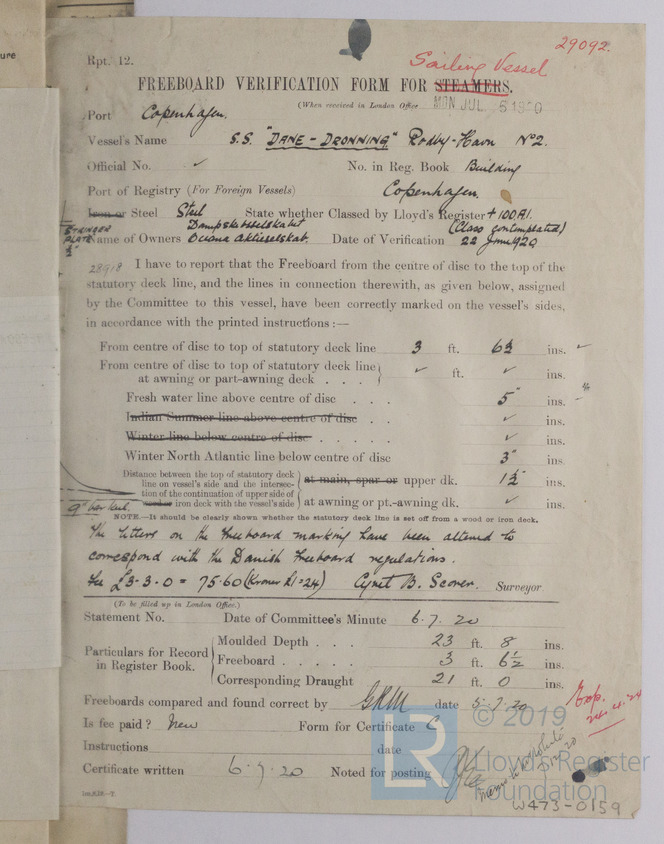 ure
29092.
Rpt. 12.
Sailing Vessel
FREEBOARD VERIFICATION FORM FOR STEAMERS.
(When received in London Office MON JUL 5 1920
Port Copenhagen.
Vessel's Name S.S. "DANE-DRONNING" Rodby-Havn No 2.
Official No. ✓ No. in Reg. Book Building
Port of Registry (For Foreign Vessels) Copenhagen.
Iron or Steel Steel State whether Classed by Lloyd's Register +100A1.
STRINGER
PLATE
Dampskibsselskabet (Class contemplated)
Name of Owners Oceana Aktieselskab. Date of Verification 22 June 1920
28918 I have to report that the Freeboard from the centre of disc to the top of the
statutory deck line, and the lines in connection therewith, as given below, assigned
by the Committee to this vessel, have been correctly marked on the vessel's sides,
in accordance with the printed instructions :—
From centre of disc to top of statutory deck line 3 ft. 6½ ins. ✓
From centre of disc to top of statutory deck line
at awning or part-awning deck . . . ✓ ft. ✓ ins.
Fresh water line above centre of disc . . . 5" ins.
Indian Summer line above centre of disc . . ✓ ins.
Winter line below centre of disc . . . . . ✓ ins.
Winter North Atlantic line below centre of disc 3" ins.
Distance between the top of statutory deck
line on vessel's side and the intersec-
tion of the continuation of upper side of
wood or iron deck with the vessel's side
at main, spar or upper dk. 1½" ins.
at awning or pt.-awning dk. ✓ ins.
9" bar keel.
NOTE.—It should be clearly shown whether the statutory deck line is set off from a wood or iron deck.
The letters on the freeboard marking have been altered to
correspond with the Danish freeboard regulations.
Fee £3-3-0 = 75.60 (Kroner £1=24) Cyril B. Scorer. Surveyor
(To be filled up in London Office.)
Statement No. Date of Committee's Minute 6.7.20
Particulars for Record
in Register Book.
Moulded Depth . . . 23 ft. 8 ins.
Freeboard . . . . . 3 ft. 6½ ins.
Corresponding Draught 21 ft. 0 ins.
Freeboards compared and found correct by GRM date 5.7.20
Is fee paid? New Form for Certificate C
Instructions date
Certificate written 6.7.20 Noted for posting
© 2019
Lloyd's Register
Foundation
W473-0159